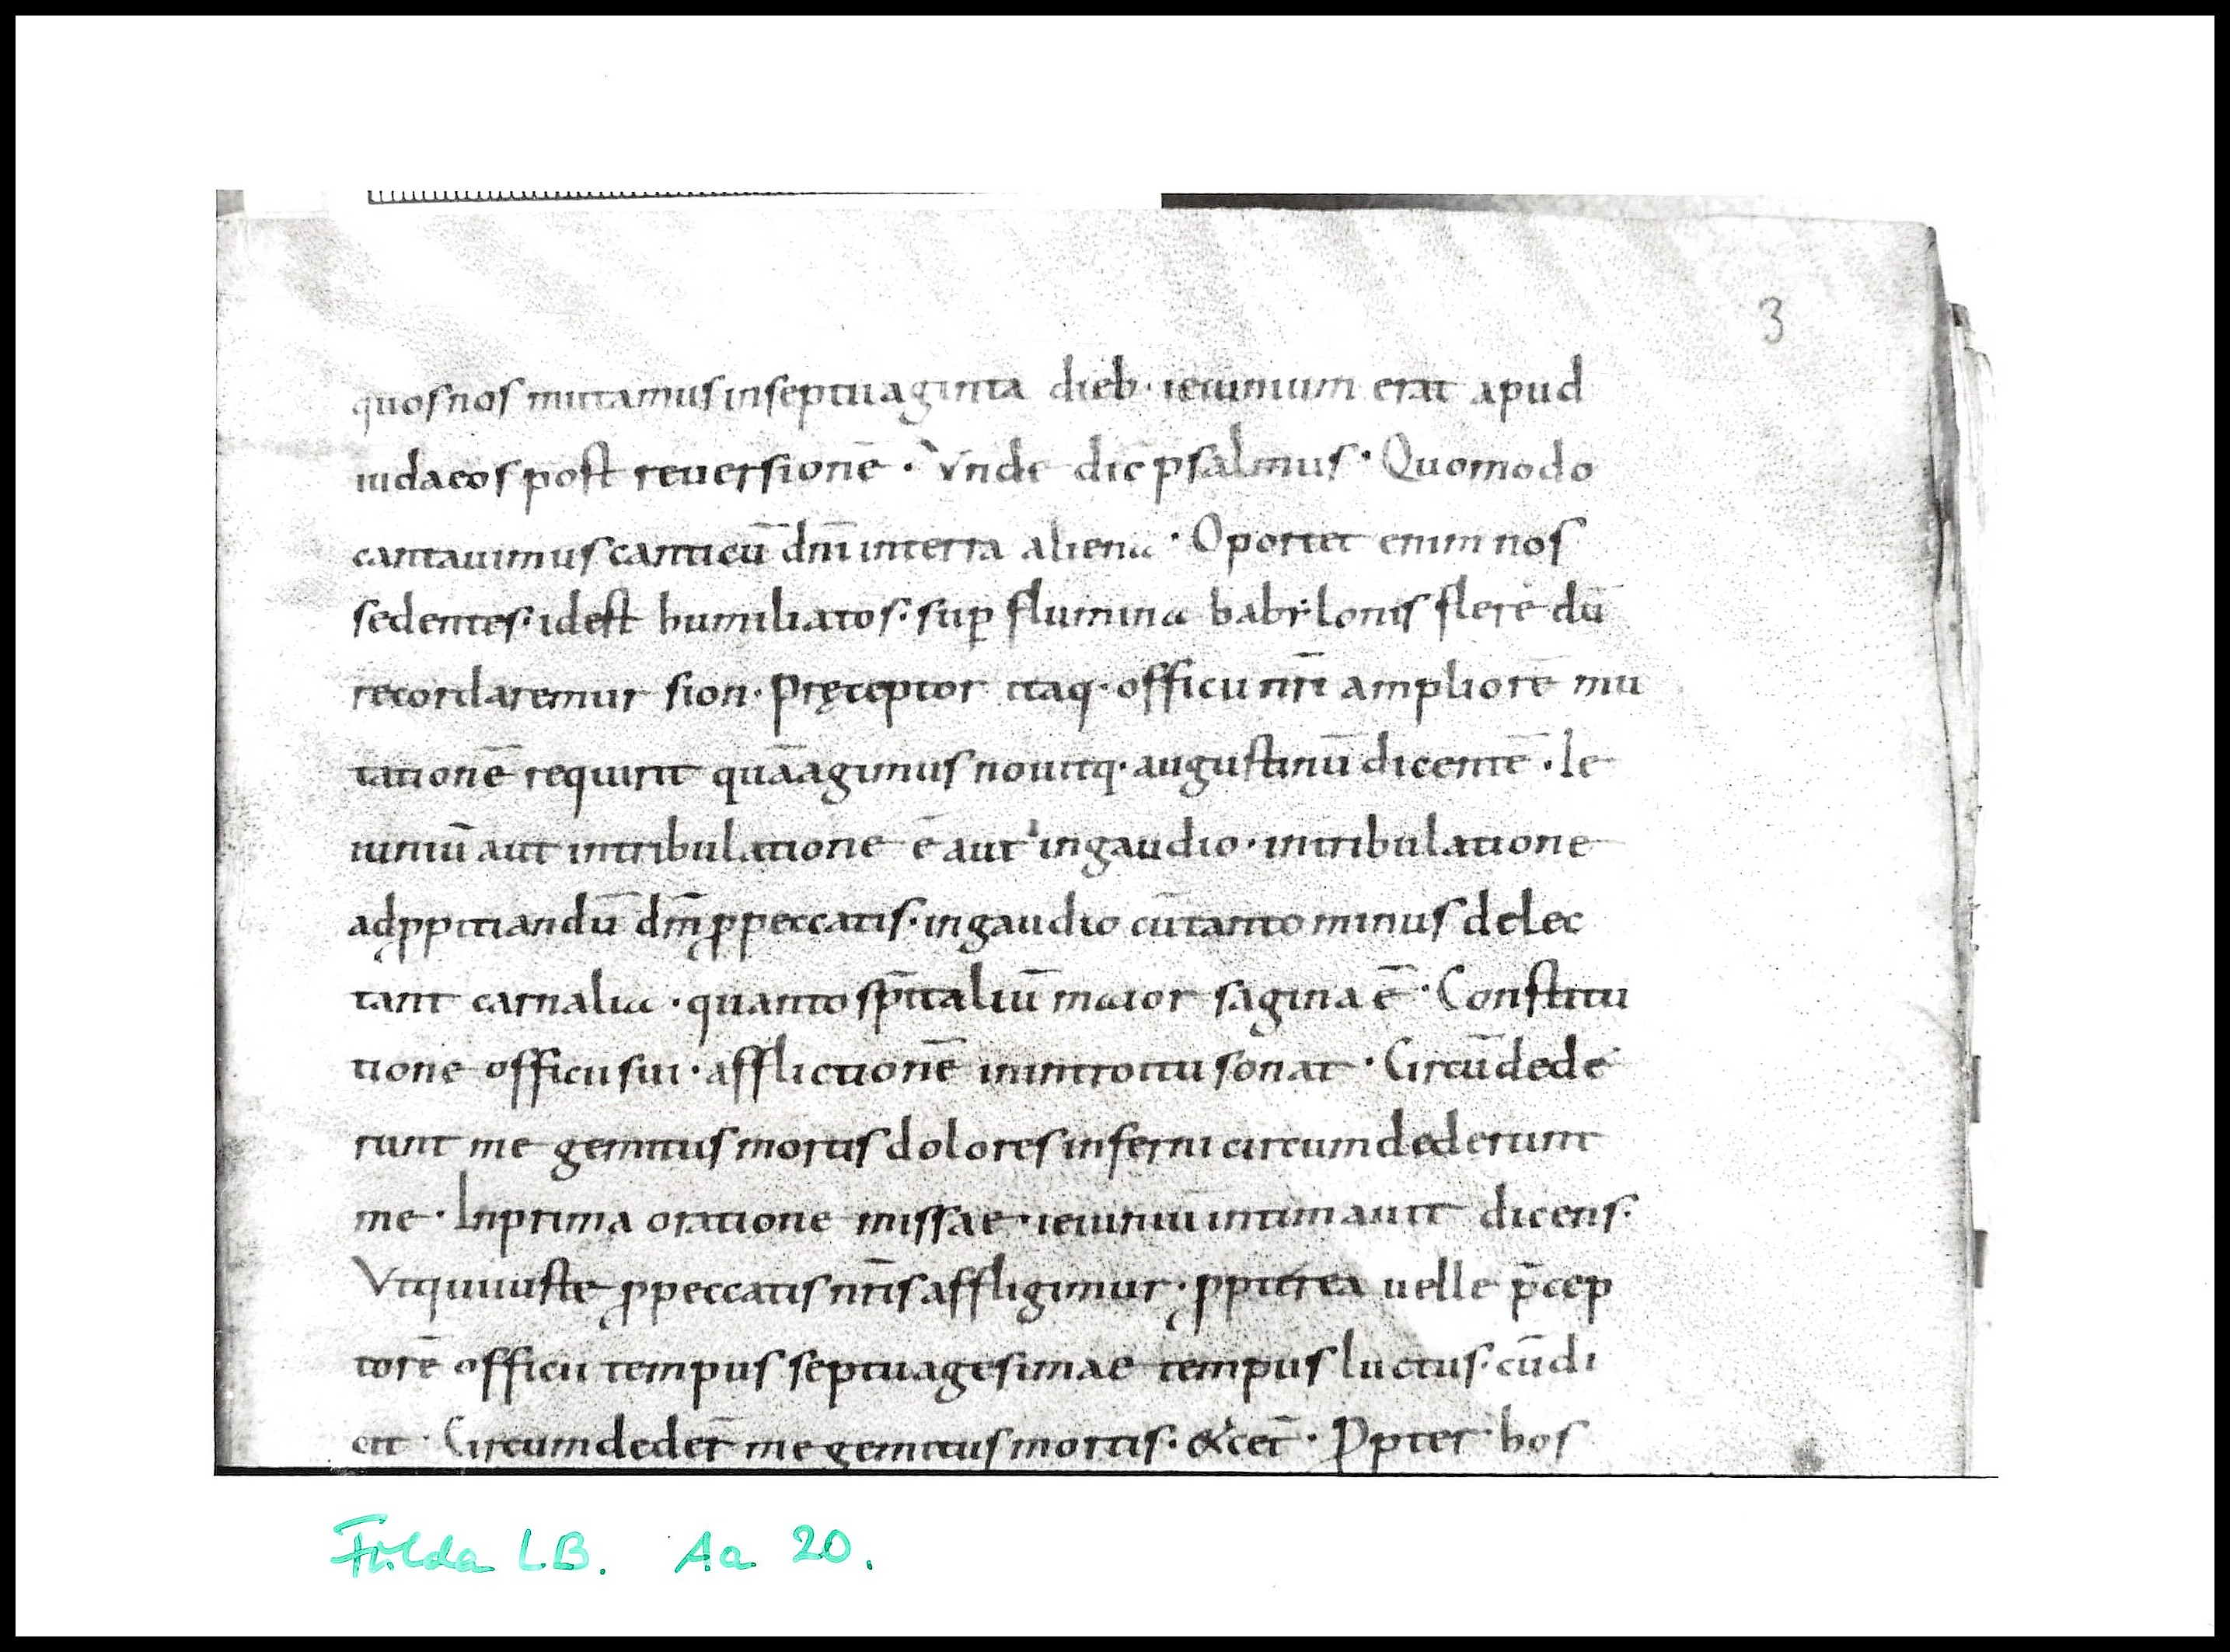 3
quos nos imitamus in septuaginta dieb· ieiunium erat apud
iudaeos post reuersionē · Vnde dic̄ psalmus · Quomodo
cantauimus canticū dnī in terra aliena · Oportet enim nos
sedentes· id est humiliatos· sup̱ flumina babẏlonis flere dū
recordaremur sion · Pręceptor itaq· officii nr̄i ampliorē mu
tationē requirit quā agimus nouitq· augustinū dicentē · Ie
iuniū aut in tribulatione ē aut in gaudio · in tribulatione
ad ꝓpitiandū dnm̄ ꝓ peccatis · in gaudio cū tanto minus delec
tant carnalia · quanto sp̄italiū maior sagina ē · Constitu
tione officii sui · afflictionē in introitu sonat · Circūdede
runt me gemitus mortis dolores inferni circumdederunt
me · In prima oratione missae · ieiuniū intimauit dicens·
Vt qui iuste ꝓ peccatis nr̄is affligimur · ꝓpterea uelle p̄cep
torē officii tempus septuagesimae tempus luctus· cū di
cit · Circumdeder̄ me gemitus mortis · & cet̄ · Ꝓpter hos
Fulda LB. Aa 20.